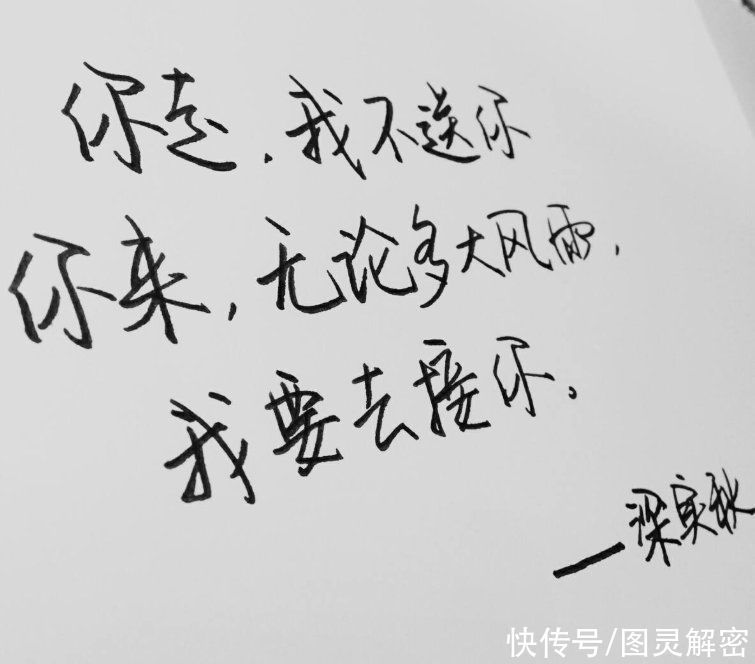 你走，我不送你
你来，无论多大风雨，
我要去接你。
—梁实秋
快传号/图灵解密